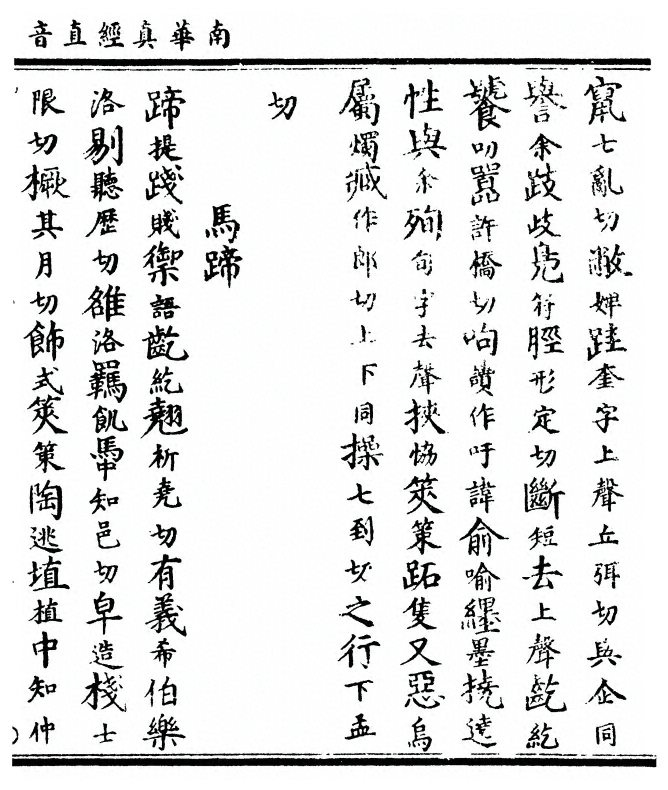 南華真經直音
竄七亂切敝婢跬奎字上聲丘弭切與企同
譽余跂歧鳧符脛形定切斷短去上聲齕紇
饕叨囂許橋切呴讀作吁諱俞喻纆墨撓遶
性與余殉旬字去聲挾恊筴策跖隻又惡烏
屬燭臧作郎切上下同操七到切之行下孟
切
馬蹄
蹄提踐賤禦語齕紇翹祈堯切有義希伯樂
洛剔聽歷切雒洛羈飢馽知邑切皁造棧士
限切橛其月切飾式筴策陶逃埴植中知仲